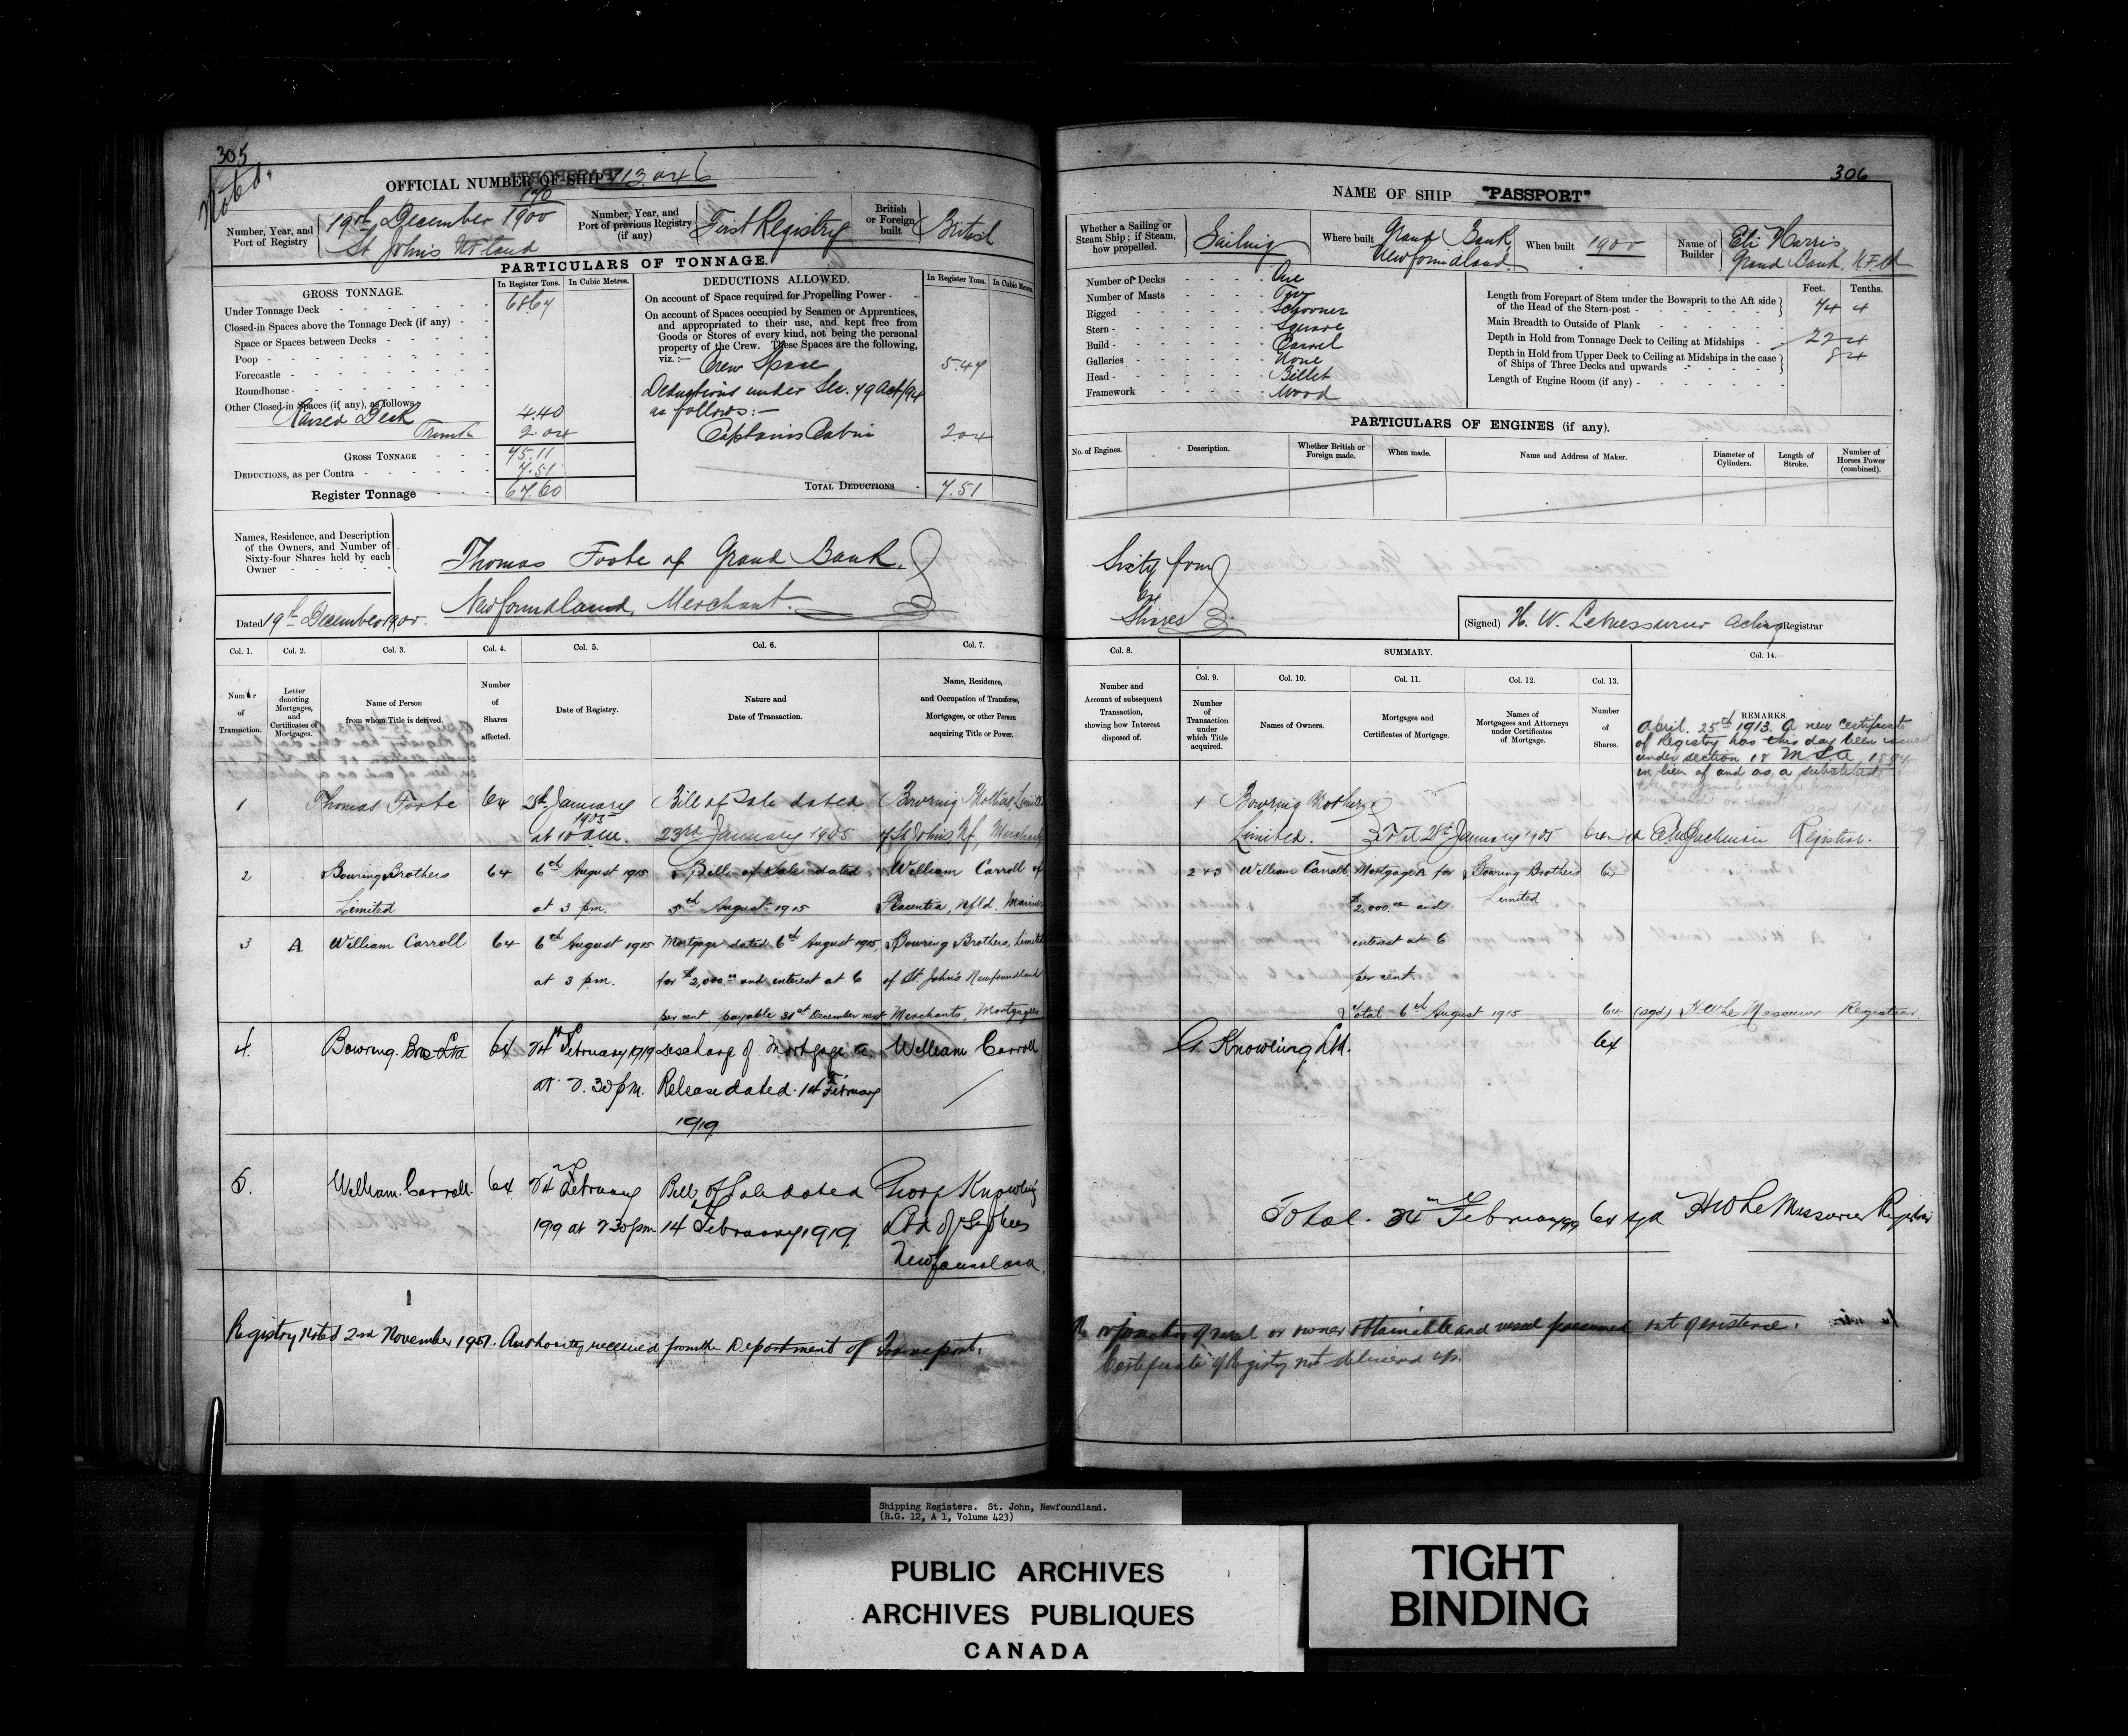 305
Noted.
OFFICIAL NUMBER OF SHIP 113,046
Number, Year, and Port of Registry
170
19th December 1900
St John's Nfland
Number, Year, and Port of previous Registry (if any)
First Registry
British or Foreign built
British
PARTICULARS OF TONNAGE.
GROSS TONNAGE.
In Register Tons.
In Cubic Metres.
Under Tonnage Deck 68.67
Closed-in Spaces above the Tonnage Deck (if any)
Space or Spaces between Decks
Poop
Forecastle
Roundhouse
Other Closed-in Spaces (if any), as follows
Raised Deck 4.40
Trunk 2.04
GROSS TONNAGE 75.11
DEDUCTIONS, as per Contra 7.51
Register Tonnage 67.60
DEDUCTIONS ALLOWED.
In Register Tons.
In Cubic Metres.
On account of Space required for Propelling Power
On account of Spaces occupied by Seamen or Apprentices,
and appropriated to their use, and kept free from
Goods or Stores of every kind, not being the personal
property of the Crew. These Spaces are the following,
viz.:—
Crew Space 5.47
Deductions under Sec. 79 Act/94
as follows:—
Captains Cabin 2.04
TOTAL DEDUCTIONS 7.51
Names, Residence, and Description
of the Owners, and Number of
Sixty-four Shares held by each
Owner
Thomas Foote of Grand Bank,
Newfoundland, Merchant.
Dated 19th December 1900.
Col. 1.
Col. 2.
Col. 3.
Col. 4.
Col. 5.
Col. 6.
Col. 7.
Number of Transaction.
Letter denoting Mortgages, and Certificates of Mortgages.
Name of Person from whom Title is derived.
Number of Shares affected.
Date of Registry.
Nature and Date of Transaction.
Name, Residence, and Occupation of Transferee, Mortgagee, or other Person acquiring Title or Power.
1 Thomas Foote 64 28th January Bill of Sale dated Bowring Brothers, Limited
1905
at 10 a.m. 23rd January 1905 of St Johns, Nf, Merchants
2 Bowring Brothers 64 6th August 1915 Bill of Sale dated William Carroll of
Limited at 3 pm. 5th August 1915 Placentia, Nfld. Mariner
3 A William Carroll 64 6th August 1915 Mortgage dated 6th August 1915, Bowring Brothers, Limited
at 3 p.m. for $2,000.00 and interest at 6 of St. John's Newfoundland
per cent payable 31st December next Merchants, Mortgagees
4. Bowring Bros Ltd 64 February 1919 Discharge of Mortgage A. William Carroll
at 2.30 pm. Release dated 14th February
1919
5. William Carroll. 64 February Bill of Sale dated George Knowling
1919 at 2 30 pm 14 February 1919 Ltd of St Johns
Newfoundland.
Registry closed 2nd November 1951. Authority received from the Department of Transport.
306
NAME OF SHIP "PASSPORT"
Whether a Sailing or Steam Ship; if Steam, how propelled.
Sailing
Where built
Grand Bank,
Newfoundland.
When built 1900
Name of Builder
Eli Harris,
Grand Bank, N.F.ld
Number of Decks One
Number of Masts Two
Rigged Schooner
Stern Square
Build Carvel
Galleries None
Head Billet
Framework Wood
Feet. Tenths.
Length from Forepart of Stem under the Bowsprit to the Aft side
of the Head of the Stern-post 74 4
Main Breadth to Outside of Plank 22 4
Depth in Hold from Tonnage Deck to Ceiling at Midships 8 4
Depth in Hold from Upper Deck to Ceiling at Midships in the case
of Ships of Three Decks and upwards
Length of Engine Room (if any)
PARTICULARS OF ENGINES (if any).
No. of Engines.
Description.
Whether British or Foreign made.
When made.
Name and Address of Maker.
Diameter of Cylinders.
Length of Stroke.
Number of Horses Power (combined).
Sixty four
Shares
(Signed) H. W. LeMessurier Acting Registrar
Col. 8.
SUMMARY.
Col. 9.
Col. 10.
Col. 11.
Col. 12.
Col. 13.
Col. 14.
Number and Account of subsequent Transaction, showing how Interest disposed of.
Number of Transaction under which Title acquired.
Names of Owners.
Mortgages and Certificates of Mortgage.
Names of Mortgagees and Attorneys under Certificates of Mortgage.
Number of Shares.
REMARKS.
April. 25th 1913. A new Certificate
of Registry has this day been issued
under section 18 M.S.A. 1894
in lieu of and as a substitute for
the original which has been
mislaid or lost
1 Bowring Brothers
Limited. 28th January 1905 64 Registrar.
2 & 3 William Carroll. Mortgage A for Bowring Brothers 64
$2,000.00 and Limited
interest at 6
per cent.
Total 6th August 1915 64 (sgd) H W Le Messurier Registrar.
G. Knowling Ltd. 64
Total. 24 February 1919 64 sgd H W LeMessurier Registrar
No information of vessel or owner obtainable and vessel presumed out of existence.
Certificate of Registry not delivered up.
Shipping Registers. St. John, Newfoundland.
(R.G. 12, A 1, Volume 423)
PUBLIC ARCHIVES
ARCHIVES PUBLIQUES
CANADA
TIGHT
BINDING